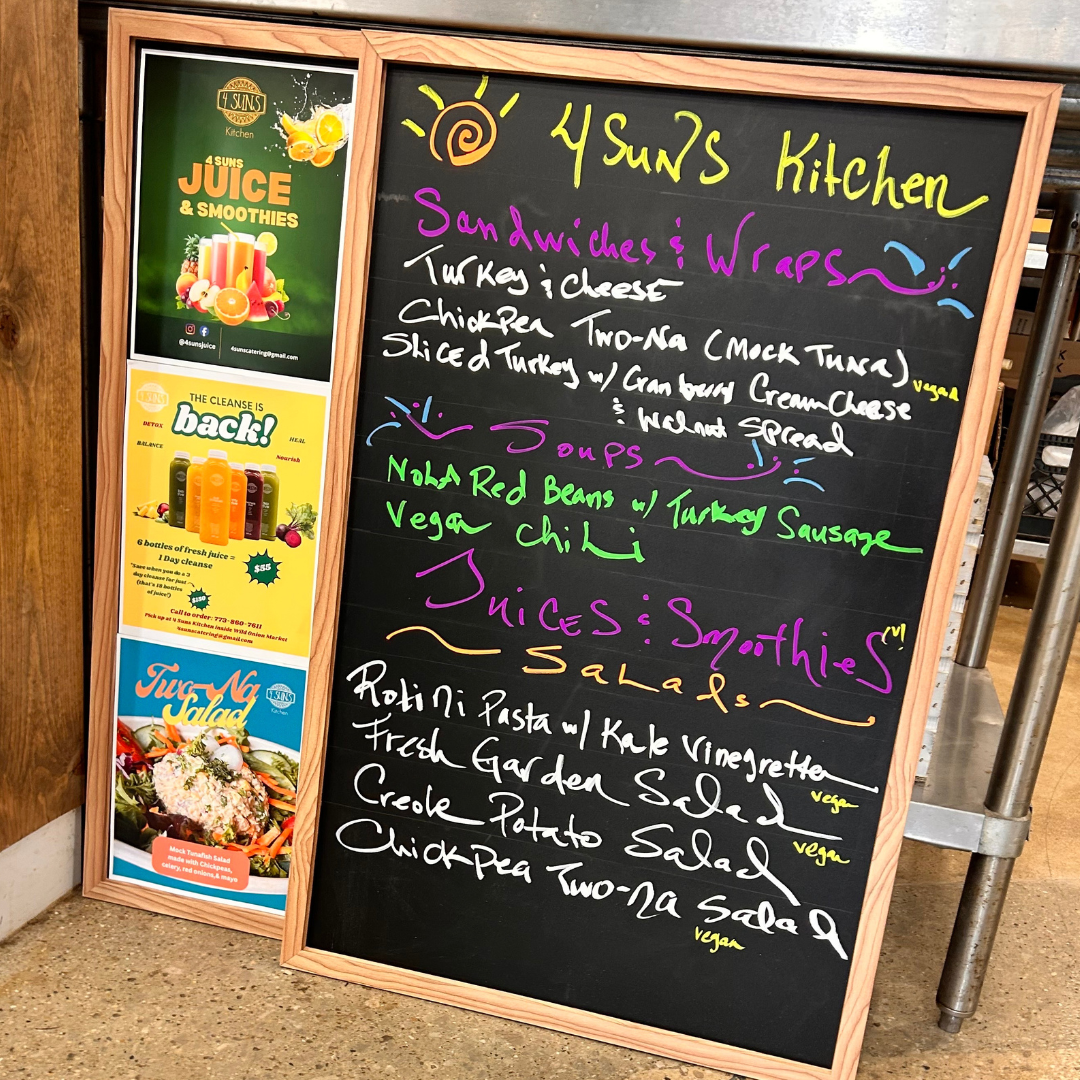 4 SUNS
Kitchen
4 SUNS
JUICE
& SMOOTHIES
@4sunsjuice
4sunscatering@gmail.com
4 SUNS
THE CLEANSE IS
back!
DETOX
BALANCE
HEAL
Nourish
6 bottles of fresh juice =
1 Day cleanse
$55
*Save when you do a 3
day cleanse for just
(that's 18 bottles
of juice!)
$150
Call to order: 773-860-7611
Pick up at 4 Suns Kitchen inside Wild Onion Market
4sunscatering@gmail.com
Two-Na
Salad
4 SUNS
Kitchen
Mock Tunafish Salad
made with Chickpeas,
celery, red onions,& mayo
4 Suns Kitchen
Sandwiches & Wraps
Turkey & Cheese
ChickPea Two-Na (Mock Tuna)
vegan
Sliced Turkey w/ Cranberry Cream Cheese
& Walnut Spread
Soups
NoLA Red Beans w/ Turkey Sausage
Vegan Chili
Juices & Smoothies
(V)
Salads
Rotini Pasta w/ Kale Vinegrette
vegan
Fresh Garden Salad
vegan
Creole Potato Salad
ChickPea Two-Na Salad
vegan